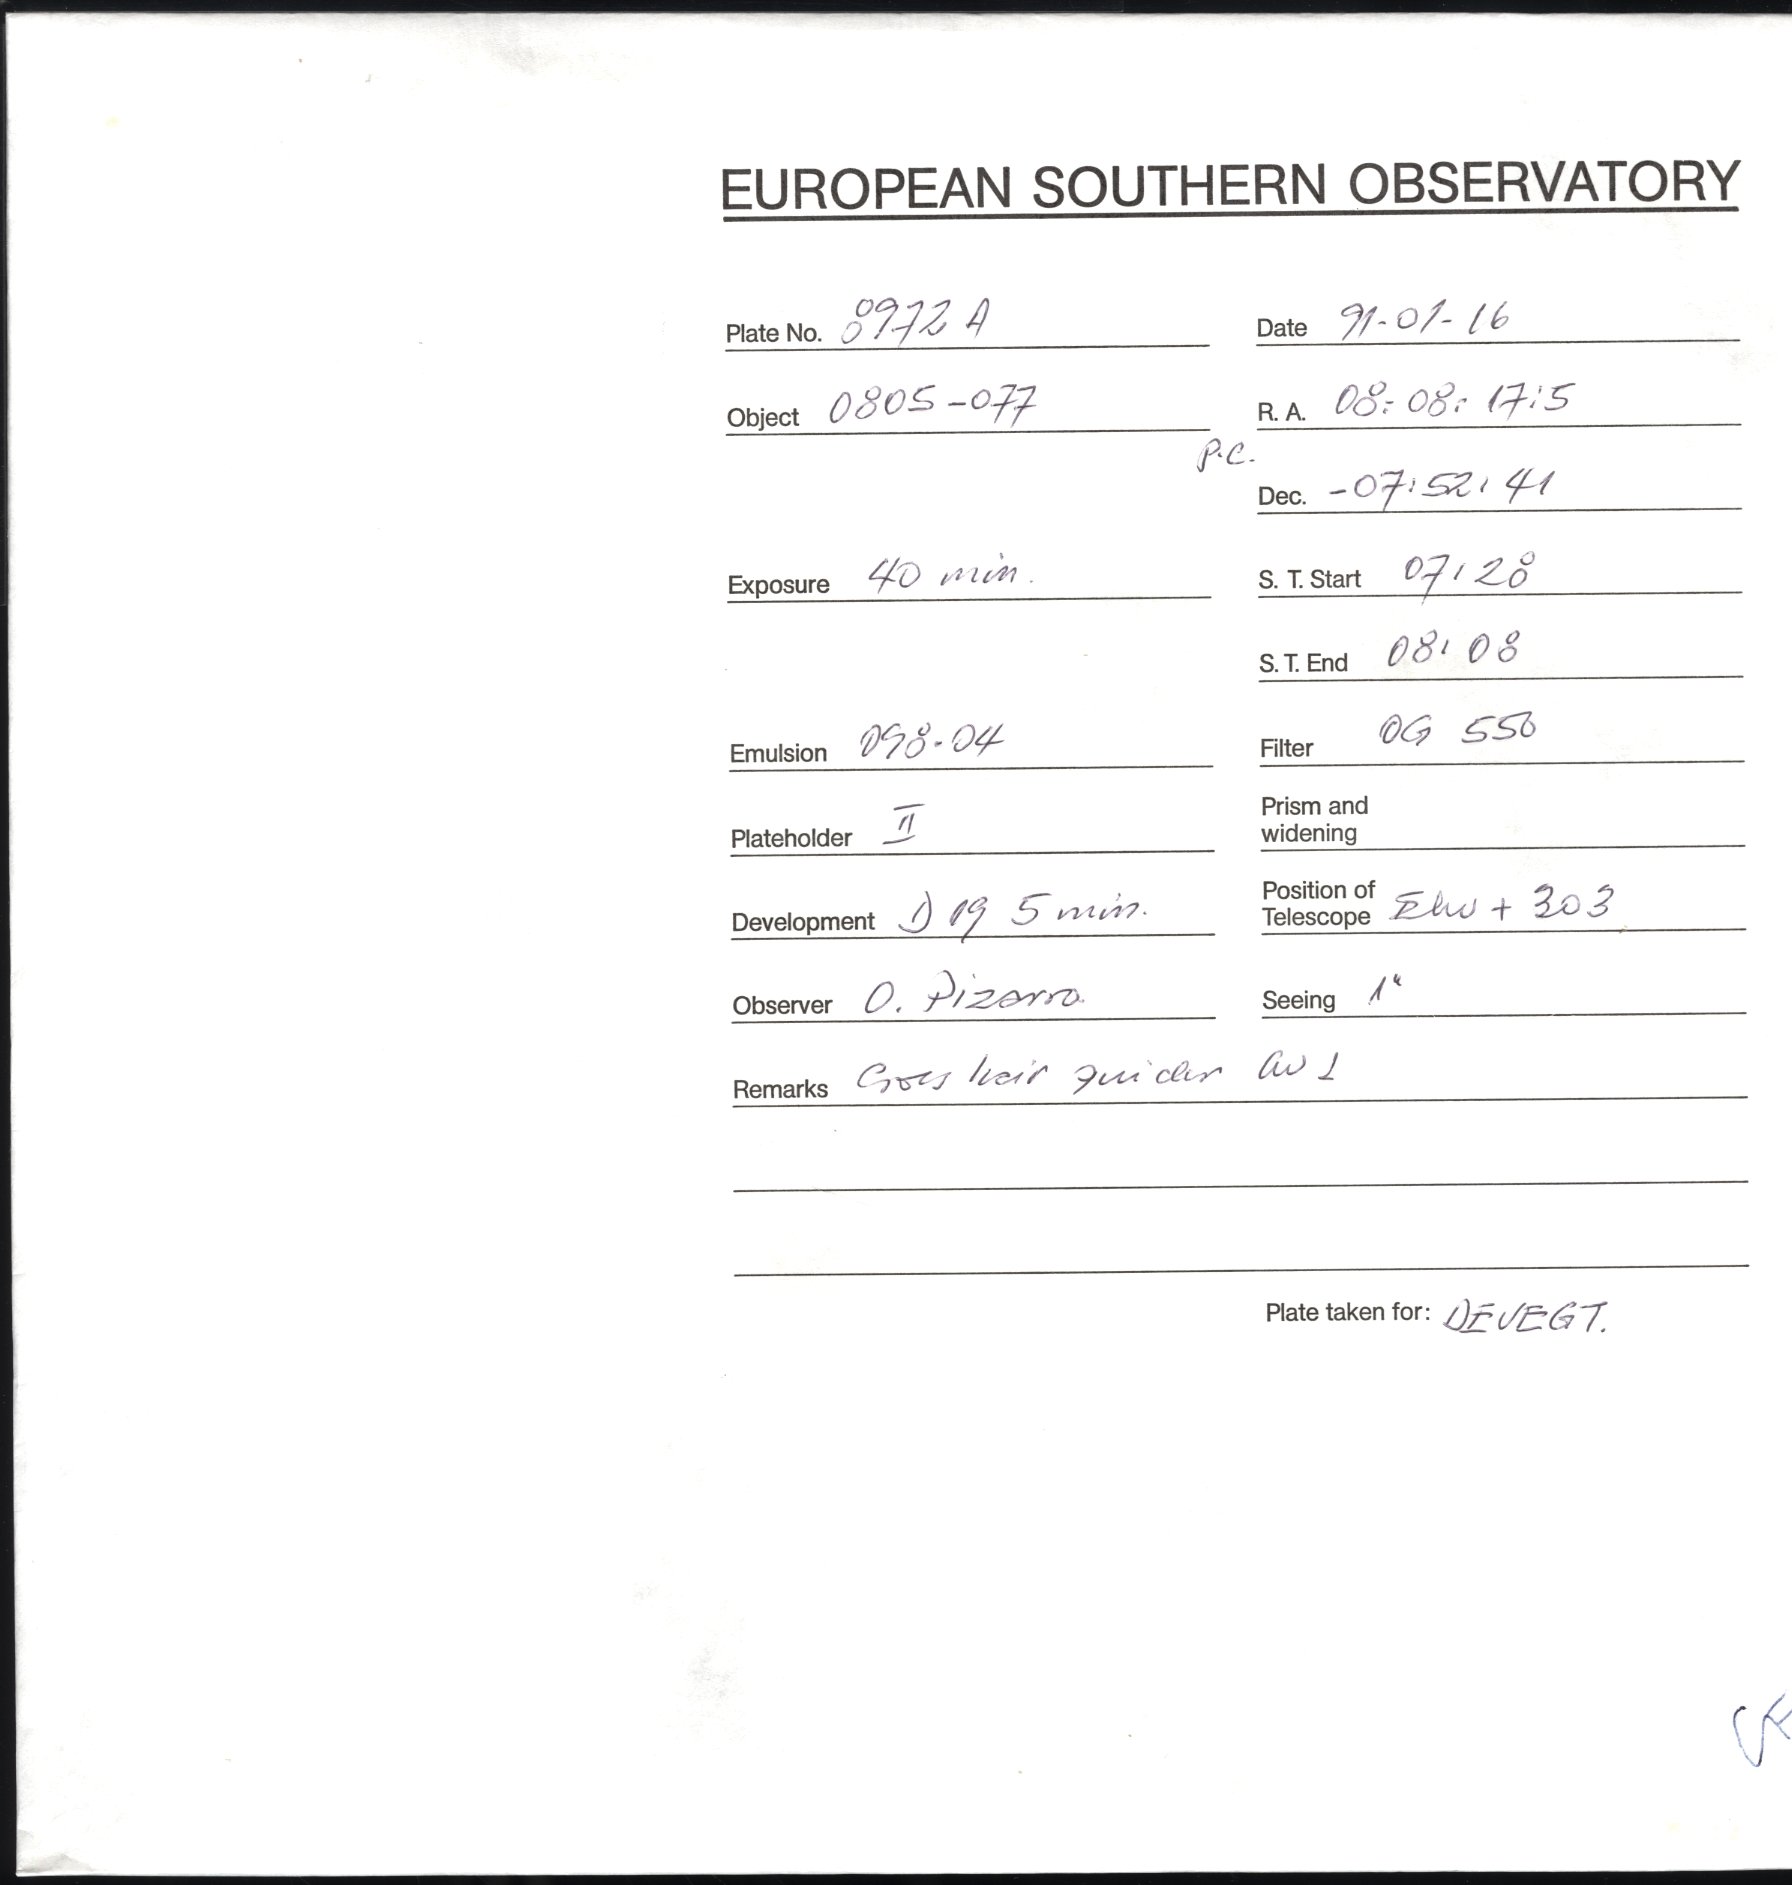 EUROPEAN SOUTHERN OBSERVATORY
Plate No. 8972 A Date 91-01-16
Object 0805-077 R. A. 08: 08: 17:5
P.C.
Dec. -07:52:41
Exposure 40 min. S. T. Start 07:28
S. T. End 08:08
Emulsion 098-04 Filter OG 550
Plateholder II Prism and
widening
Development D 19 5 min. Position of
Telescope + 303
Observer O. Pizarro. Seeing 1"
Remarks hair
Plate taken for: DEVEGT.